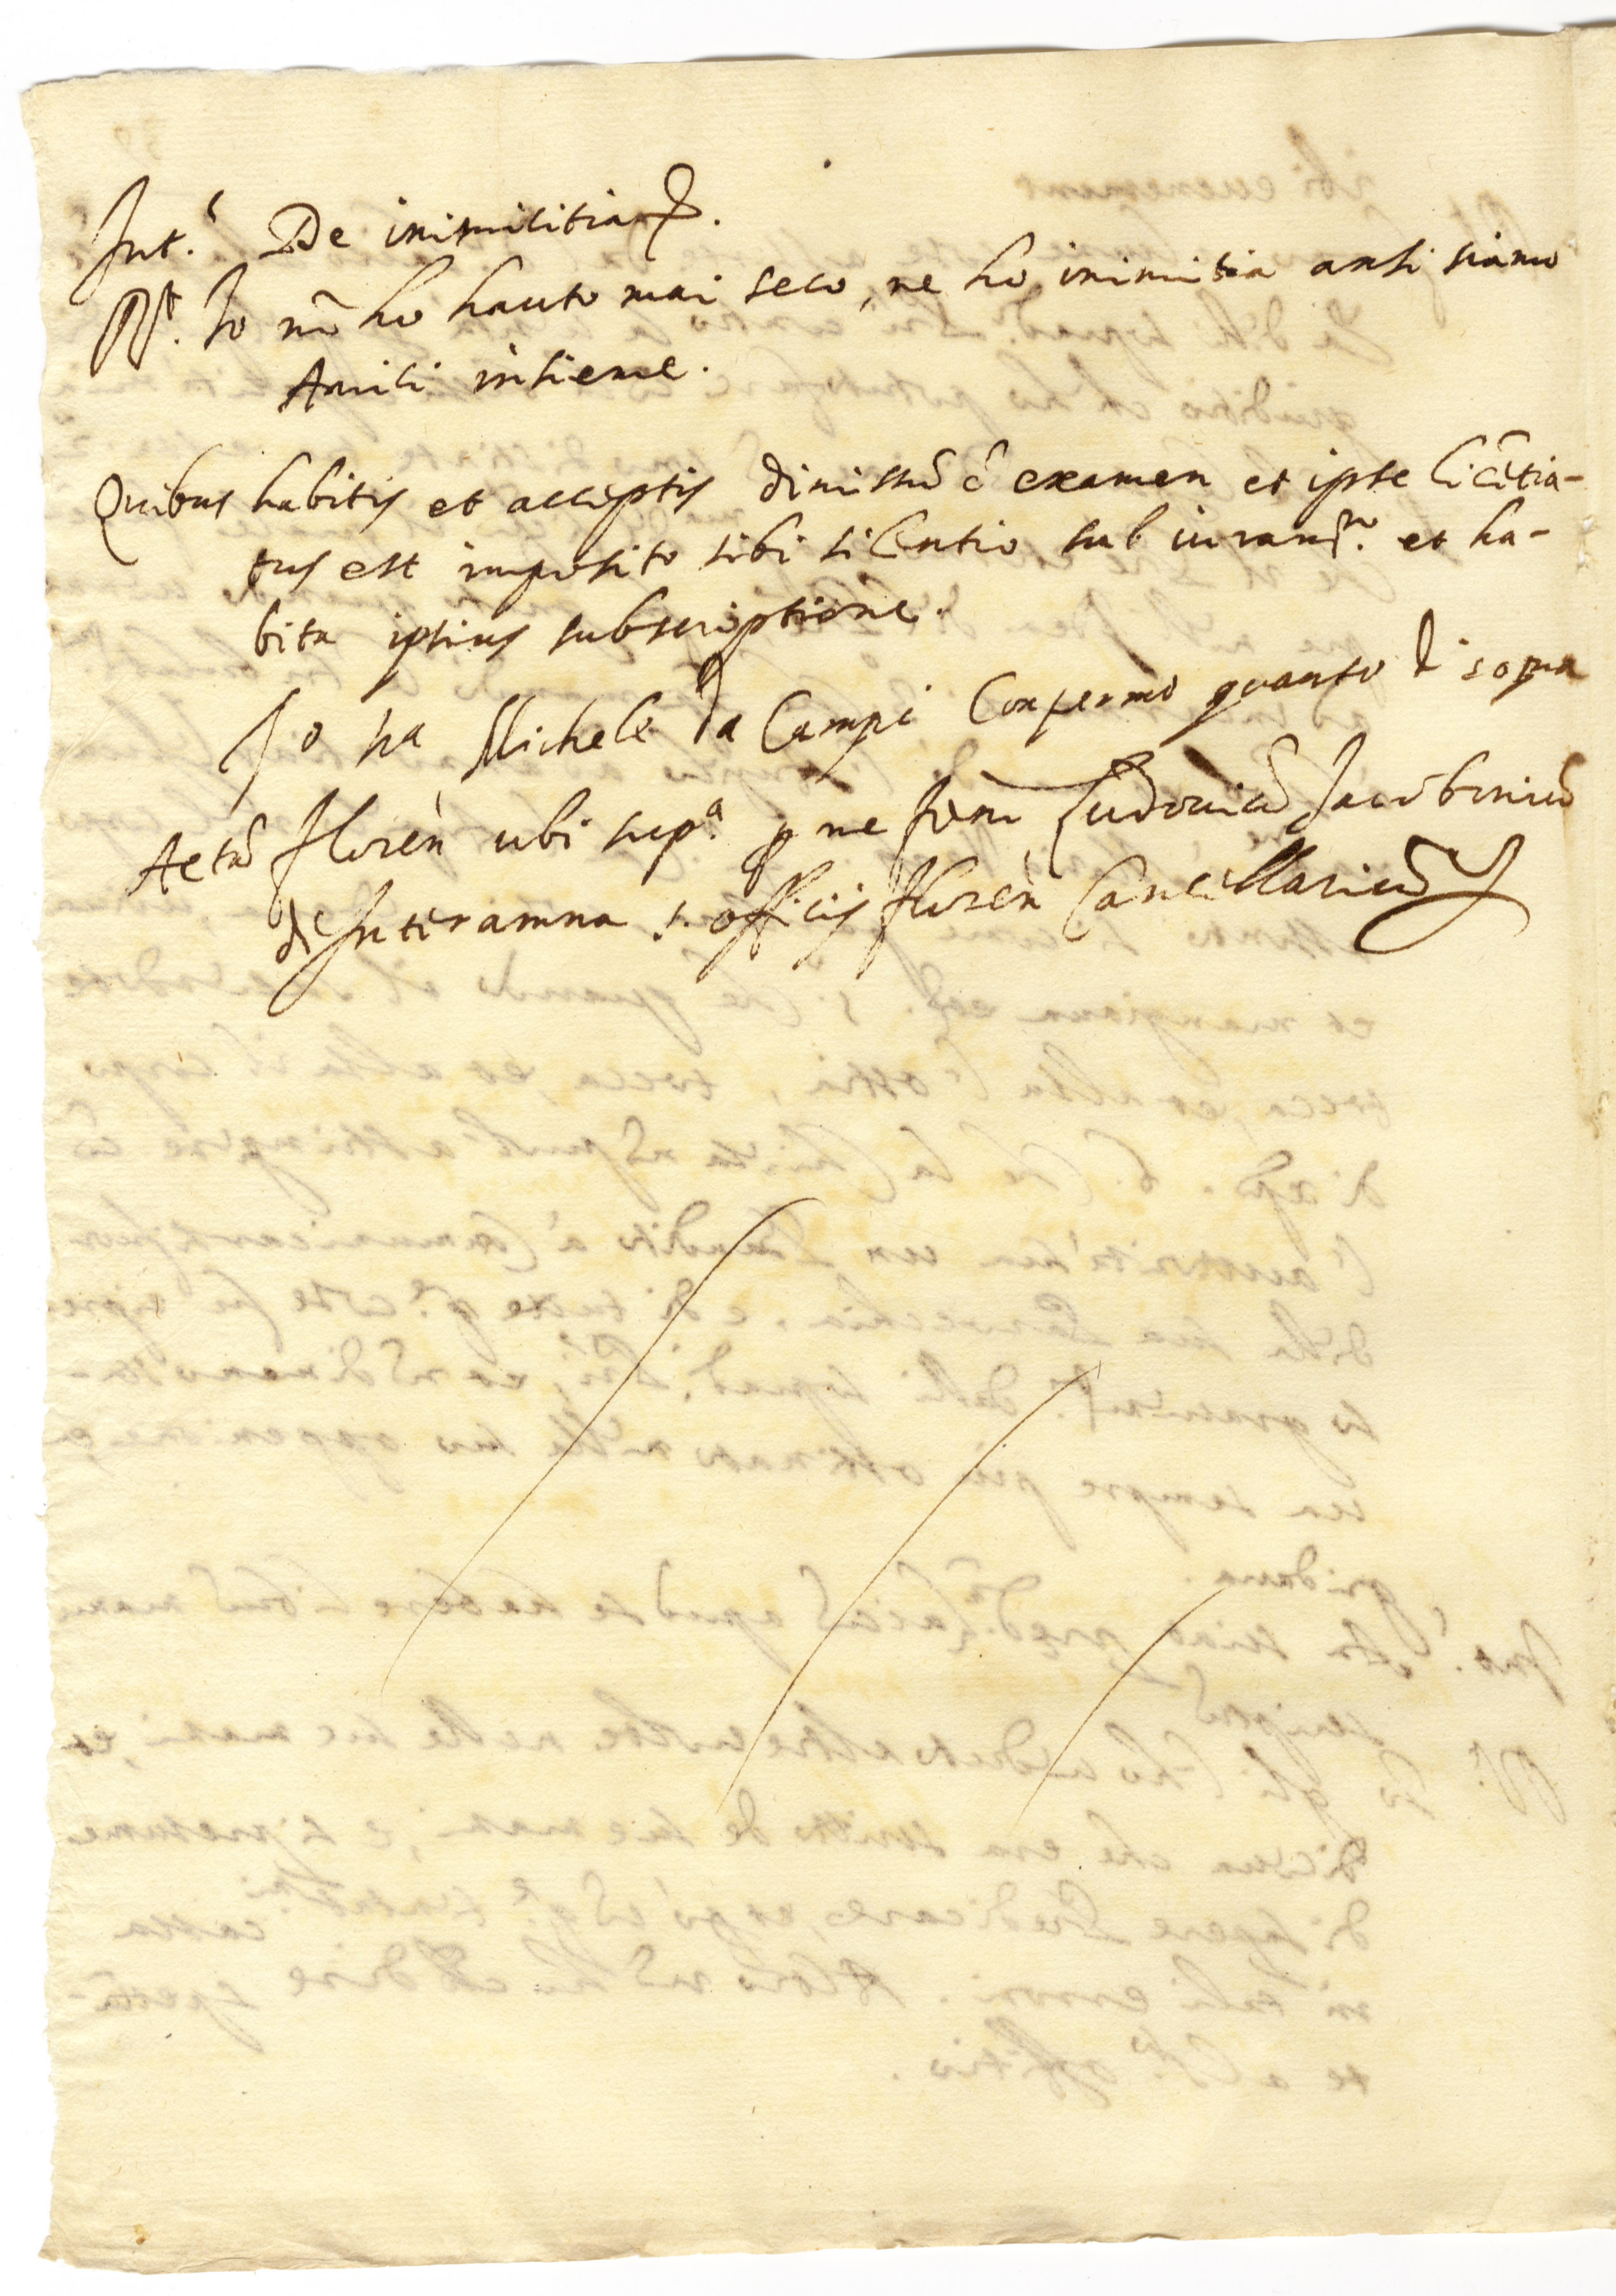 Int.s De inimicitia etc.
Rt. Io nō ho hauto mai seco, ne ho inimitia anti siamo
Amici insieme.
Quibus habitis et acceptis dimissū ē examen et ipse licētia-
tus est imposito sibi silentio sub iuram.to et ha-
bita ipsius subscriptione.
Io fra Michele da Campi Confermo quanto di sopra
Actū Floren̄ ubi sup.a p me Ludouicū Jacobiniū
de Interamna s. officij Floren̄ Cancellariū